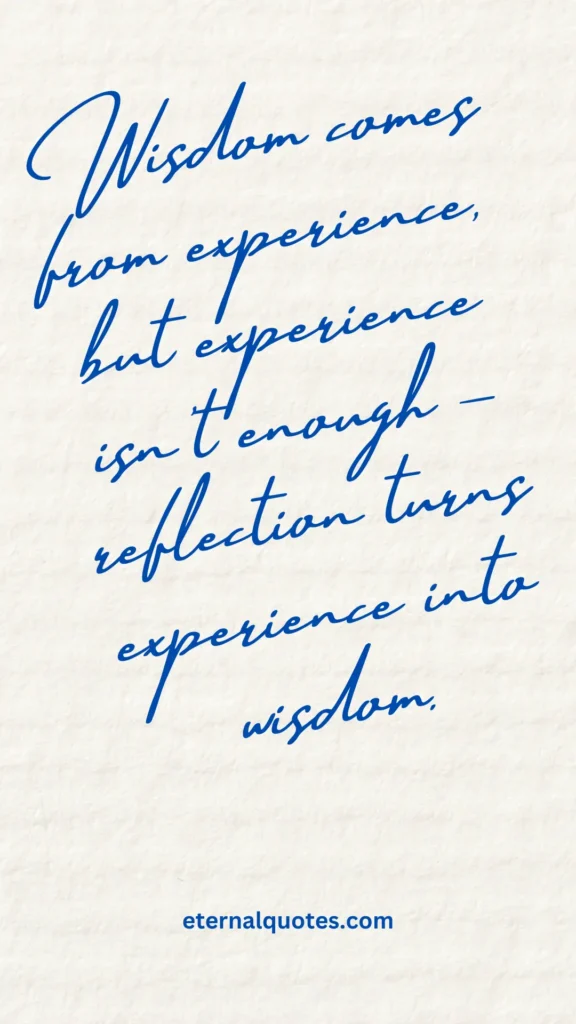 Wisdom comes
from experience,
but experience
isn't enough –
reflection turns
experience into
wisdom.
eternalquotes.com